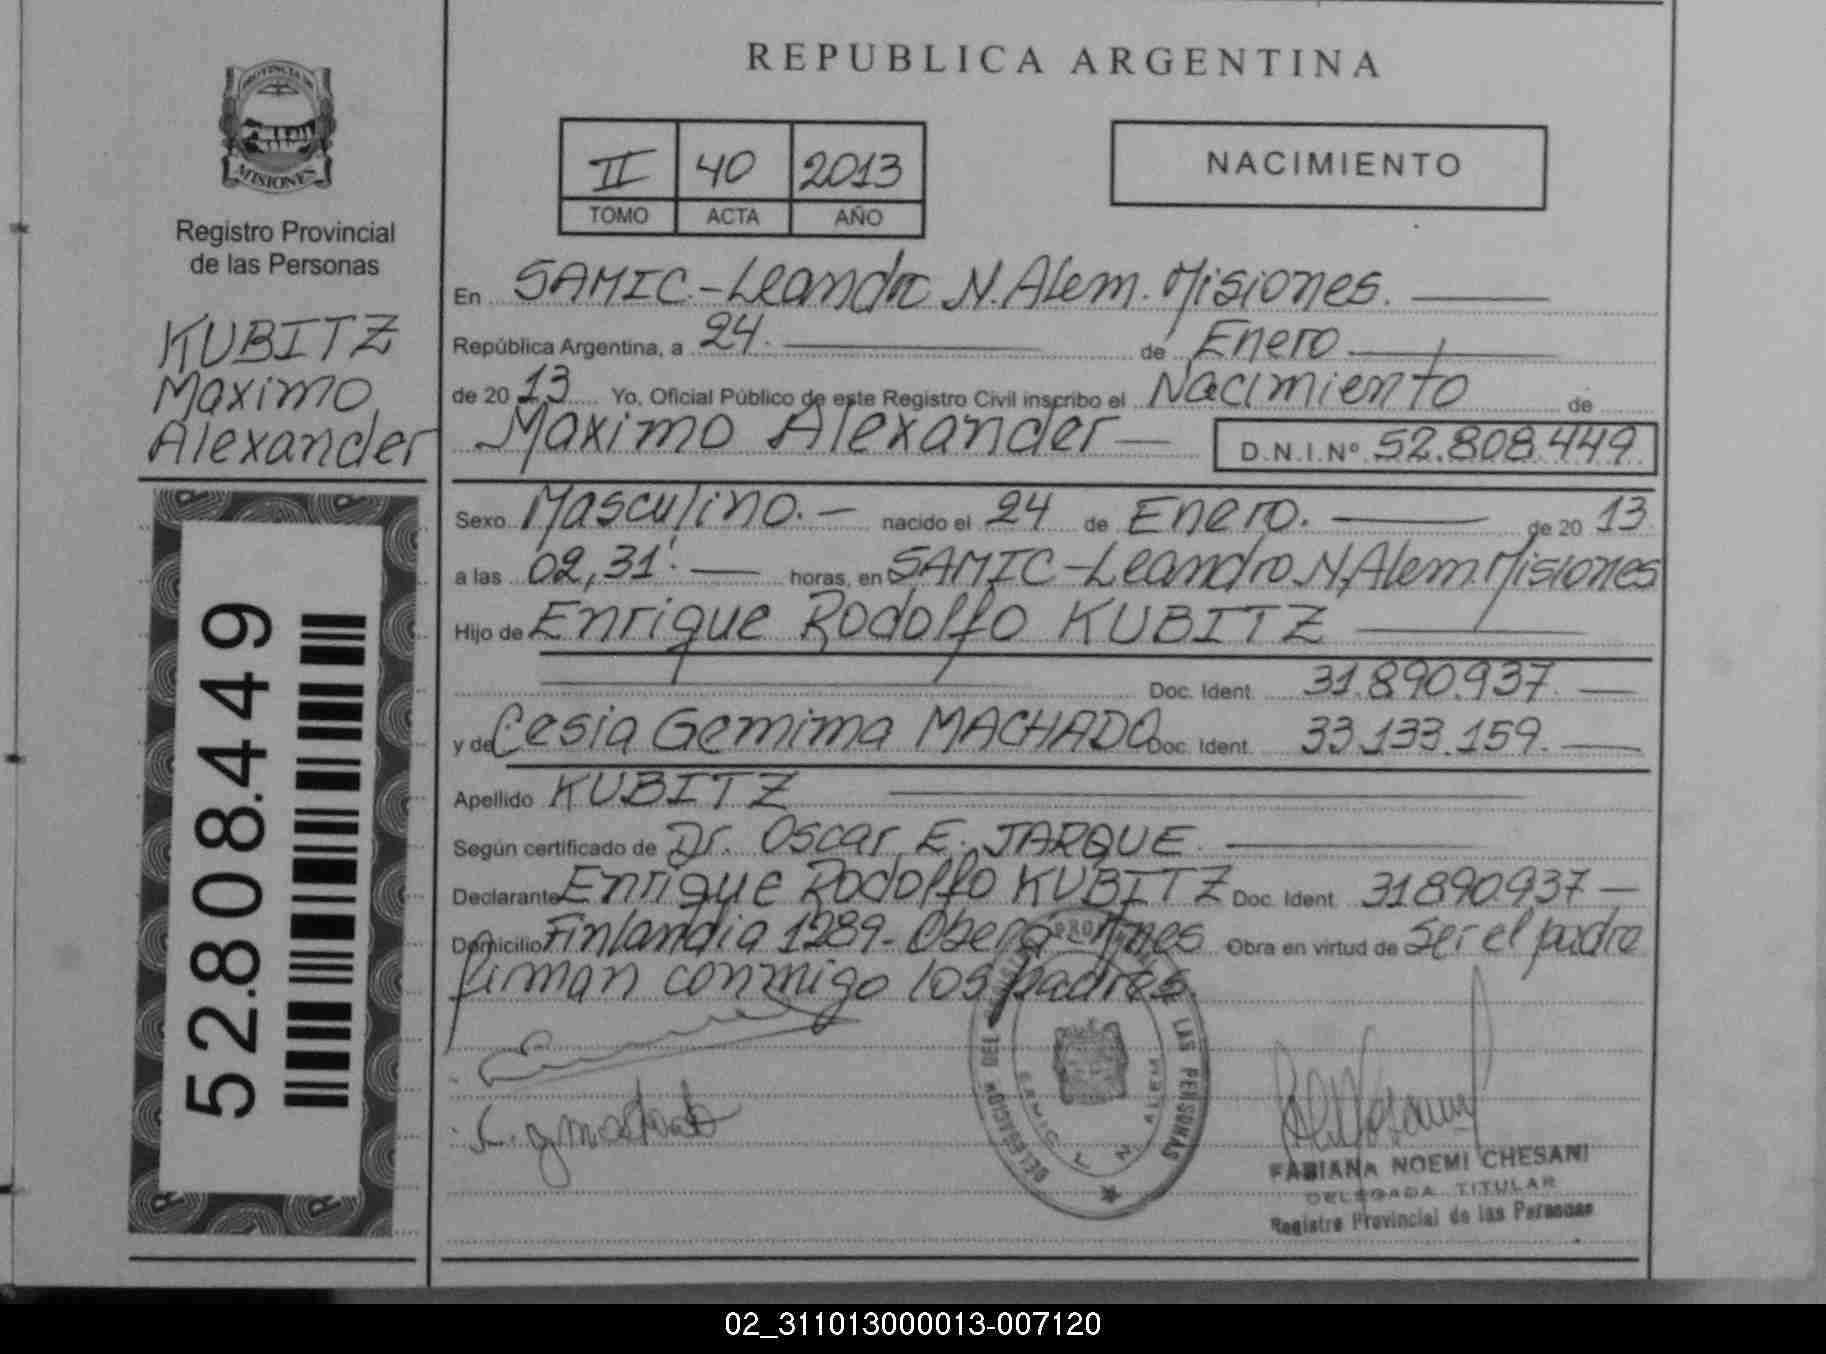 REPUBLICA ARGENTINA
PROVINCIA DE
MISIONES
Registro Provincial
de las Personas
KUBITZ
Maximo
Alexander
52.808.449
II 40 2013
TOMO ACTA AÑO
NACIMIENTO
En SAMIC.-Leandro N. Alem. Misiones.
República Argentina, a 24. de Enero
de 20 13 Yo, Oficial Público de este Registro Civil inscribo el Nacimiento de
Maximo Alexander — D.N.I.Nº 52.808.449
Sexo Masculino.- nacido el 24 de Enero. de 20 13
a las 02,31'. horas, en SAMIC-Leandro N. Alem. Misiones
Hijo de Enrique Rodolfo KUBITZ
Doc. Ident. 31.890.937.
y de Cesia Gemima MACHADO Doc. Ident. 33.133.159.
Apellido KUBITZ
Según certificado de Dr. Oscar E. JARQUE.
Declarante Enrique Rodolfo KUBITZ Doc. Ident. 31.890.937
Domicilio Finlandia 1289- Oberá Mnes Obra en virtud de Ser el padre
firman conmigo los padres.
DELEGACION DEL LAS PERSONAS
SAMIC L. N. ALEM
FABIANA NOEMI CHESANI
DELEGADA TITULAR
Registro Provincial de las Personas
02_311013000013-007120